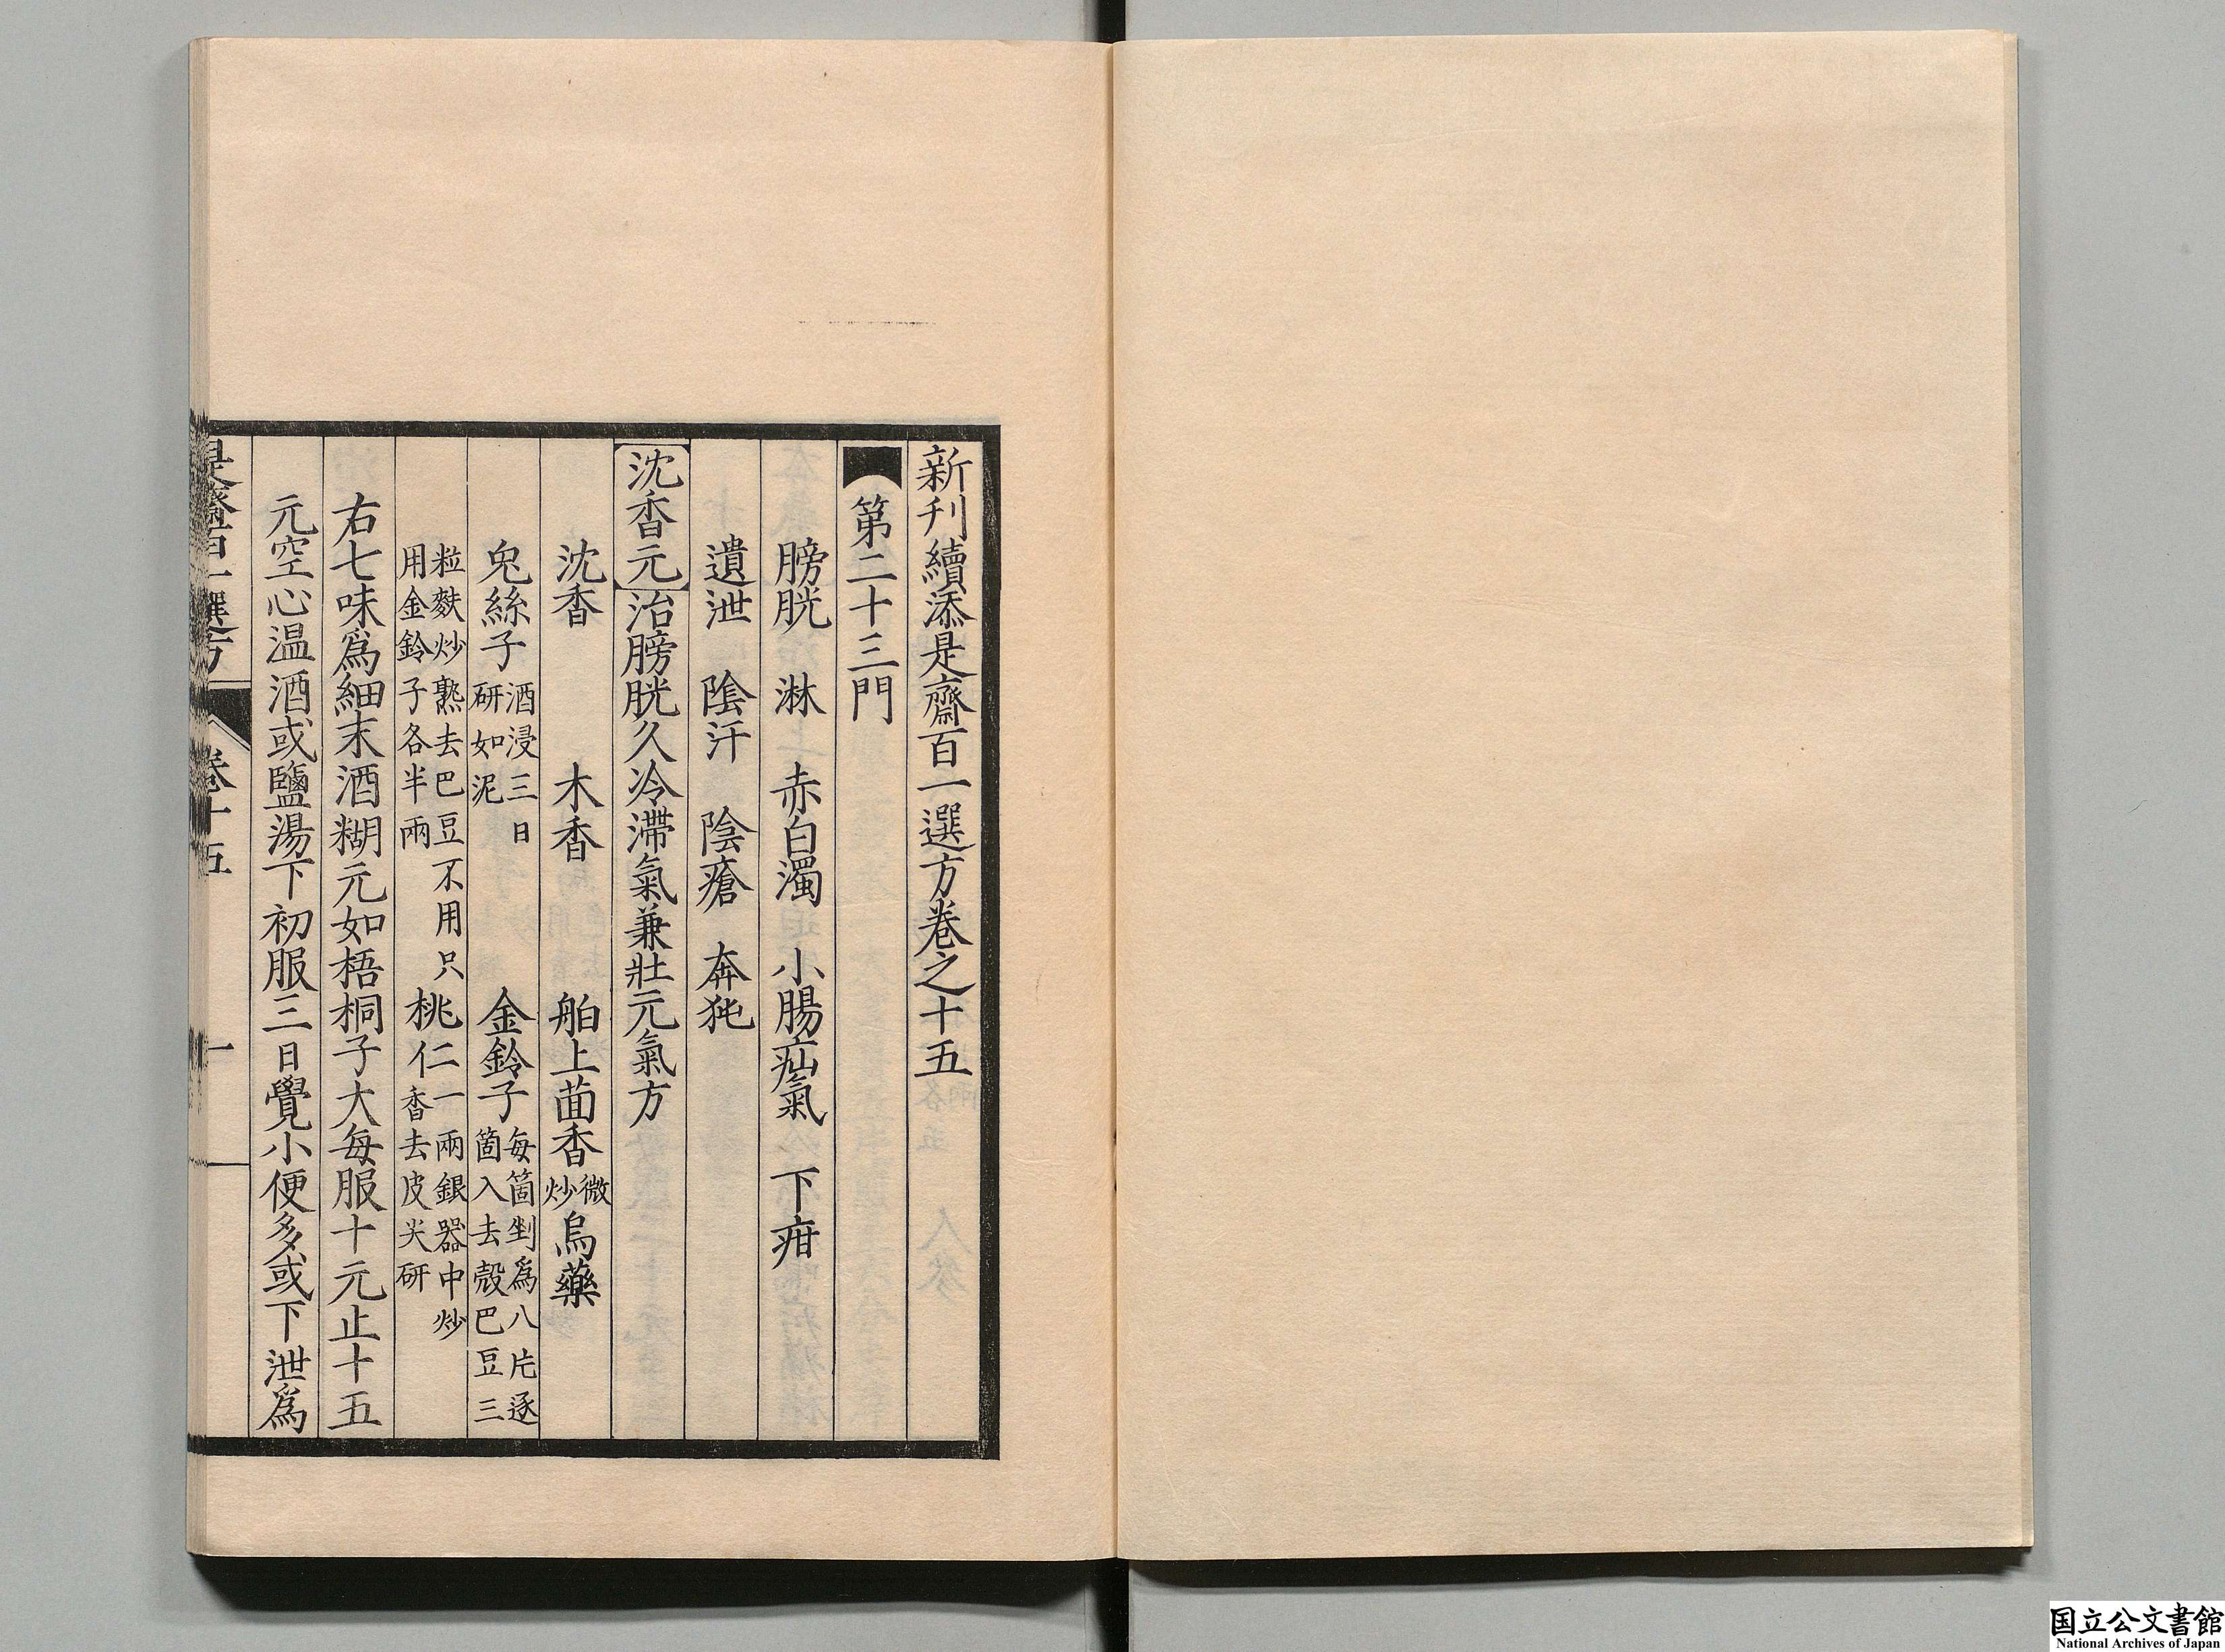 新刊續添是齋百一選方卷之十五
第二十三門
膀胱　淋　赤白濁　小腸疝氣　下疳
遺泄　陰汗　陰瘡　奔㹠
沈香元治膀胱久冷滯氣兼壯元氣方
沈香　木香　舶上茴香微炒烏藥
兔絲子酒浸三日研如泥　金鈴子每箇剉爲八片逐箇入去殼巴豆三
粒麩炒熟去巴豆不用只用金鈴子各半兩　桃仁一兩銀器中炒香去皮尖研
右七味爲細末酒糊元如梧桐子大每服十元止十五
元空心温酒或鹽湯下初服三日覺小便多或下泄爲
是齋百一選方　卷十五　一
国立公文書館
National Archives of Japan